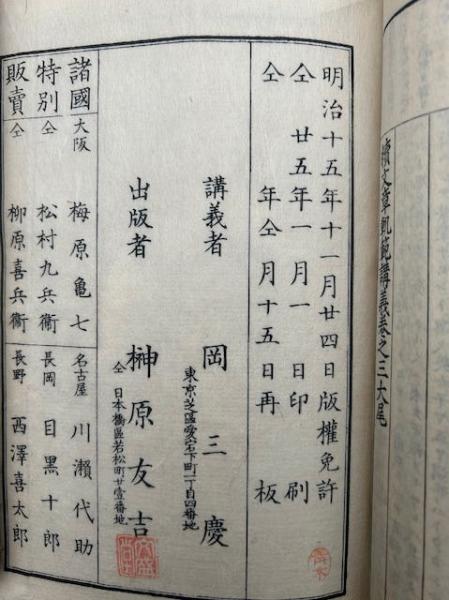 續文章軌範講義卷之三大尾
明治十五年十一月廿四日版權免許
仝 廿五年一月一日印刷
仝 年仝月十五日再板
講義者 岡三慶
東京芝區愛宕下町一丁目四番地
出版者 榊原友吉
仝 日本橋區若松町廿壹番地
諸國 大阪 梅原亀七 名古屋 川瀨代助
特別 仝 松村九兵衞 長岡 目黒十郎
販賣 仝 柳原喜兵衞 長野 西澤喜太郎